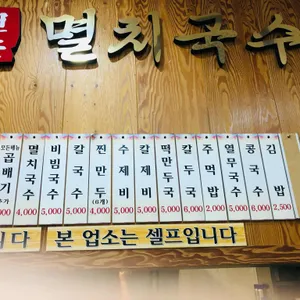 멸치국수
모든메뉴 곱빼기 추가
멸치국수 4,000
비빔국수 5,000
칼국수 5,000
찐만두 (6개) 4,000
수제비 5,000
칼제비 5,000
떡만두국 5,000
칼두국 6,000
주먹밥 2,000
열무국수 5,000
콩국수 6,000
김밥 2,500
니다 본 업소는 셀프입니다